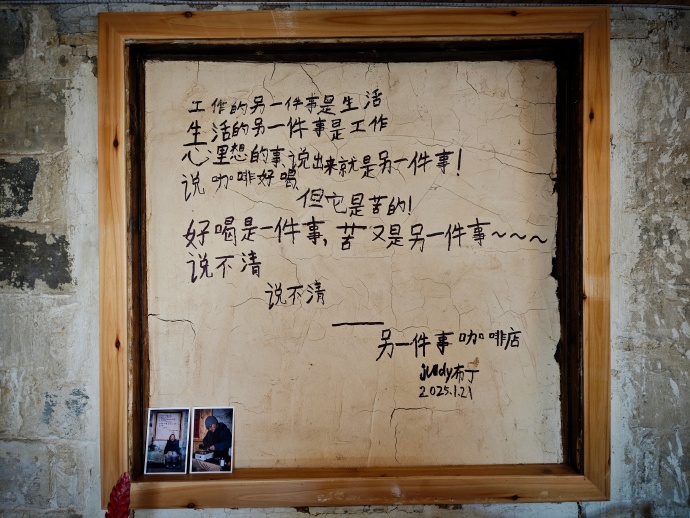 工作的另一件事是生活
生活的另一件事是工作
心里想的事,说出来就是另一件事!
说咖啡好喝,
但它是苦的!
好喝是一件事,苦又是另一件事~~~~
说不清
说不清
——
另一件事咖啡店
judy布丁
2025.1.21